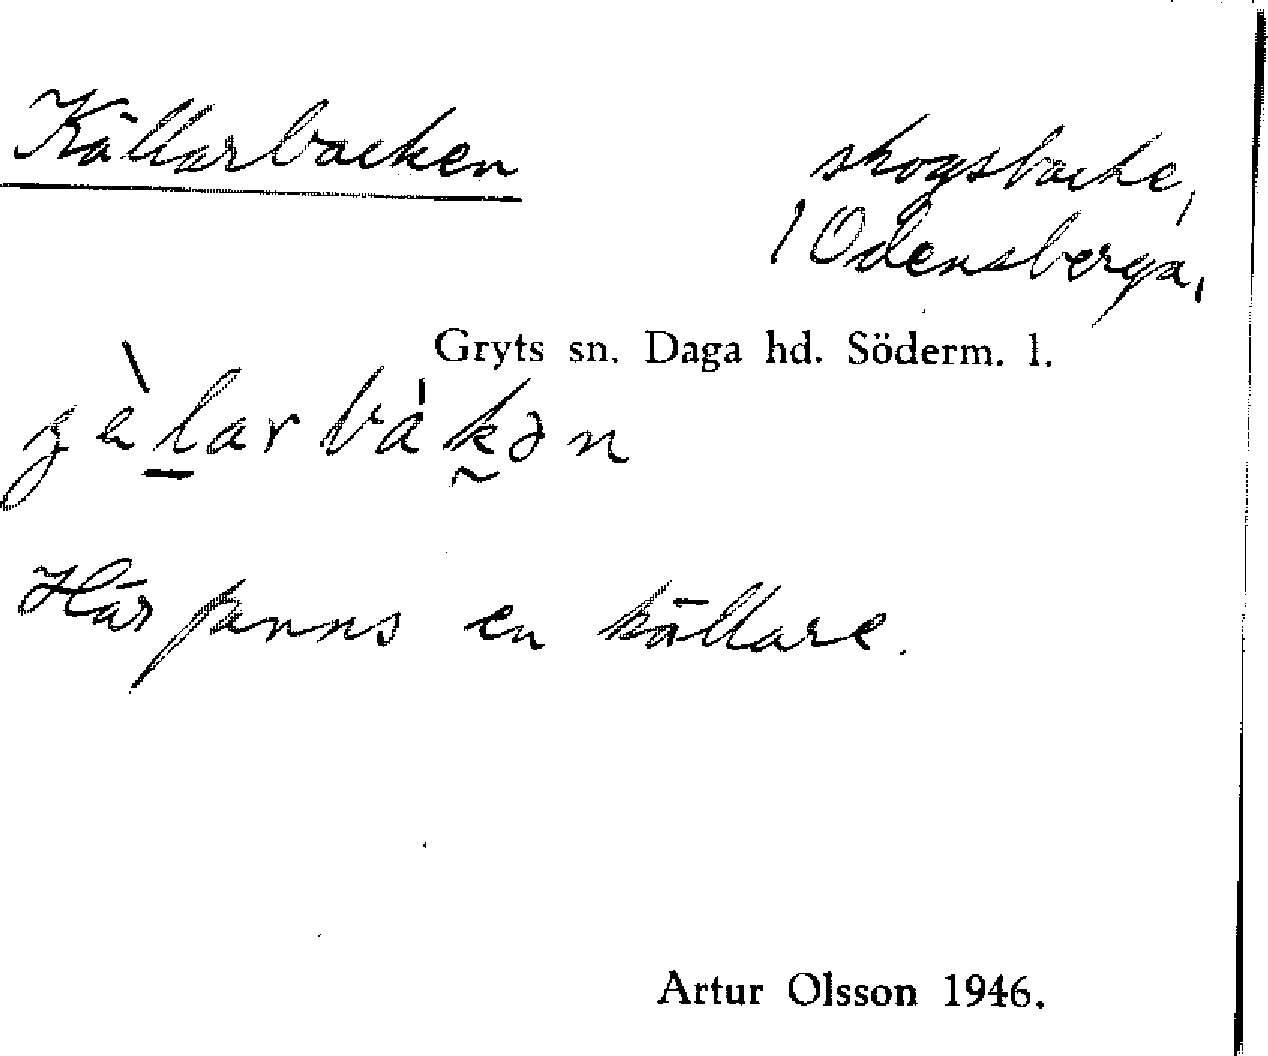 Källarbacken
skogsbacke,
/ Odensberga,
Gryts sn. Daga hd. Söderm. l.
Här fanns en källare.
Artur Olsson 1946.